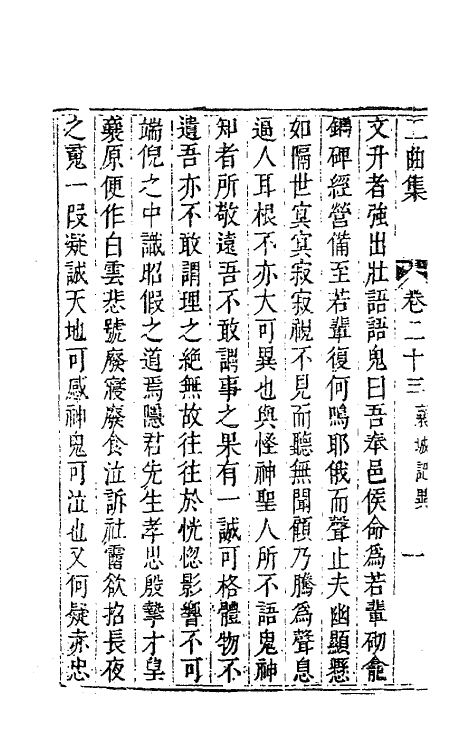 二曲集 卷二十三 襄城記異 一
文升者強出壯語語鬼曰吾奉邑侯命為若輩砌龕
鐫碑經營備至若輩復何鳴耶俄而聲止夫幽顯懸
如隔世寞寞寂寂視不見而聽無聞顧乃騰為聲息
逼人耳根不亦大可異也與怪神聖人所不語鬼神
知者所敬遠吾不敢謂事之果有一誠可格體物不
遺吾亦不敢謂理之絶無故往往於恍惚影響不可
端倪之中識昭假之道焉隱君先生孝思殷摯才皇
襄原便作白雲悲號廢寢廢食泣訴社霤欲招長夜
之䰟一段疑誠天地可感神鬼可泣也又何疑赤忠